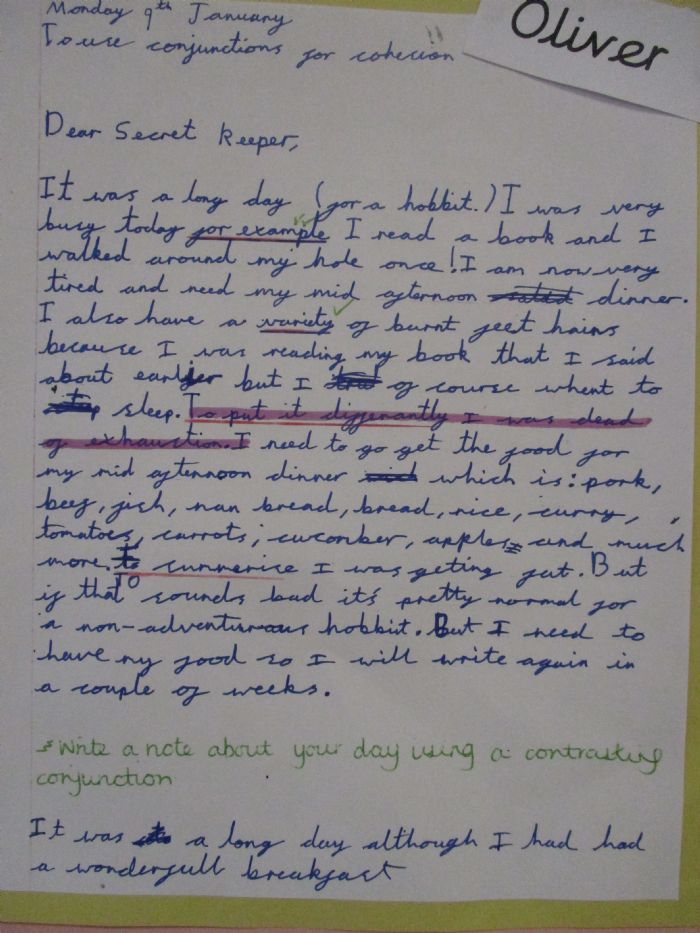 Monday 9th January
Oliver
To use conjunctions for cohesion
Dear Secret Keeper,
It was a long day (for a hobbit.) I was very
busy today for example I read a book and I
walked around my hole once! I am now very
tired and need my mid afternoon dinner.
I also have a variety of burnt feet hairs
because I was reading my book that I said
about earlier but I of course whent to
sleep. To put it differantly I was dead
of exhaustion. I need to go get the food for
my mid afternoon dinner which is: pork,
beef, fish, nan bread, bread, rice, curry,
tomatoes, carrots, cucomber, apples and much
more. To summerise I was geting fat. But
if that sounds bad it's pretty normal for
a non-adventurous hobbit. But I need to
have my food so I will write again in
a couple of weeks.
Write a note about your day using a contrasting
conjunction
It was a long day although I had had
a wonderfull breakfast